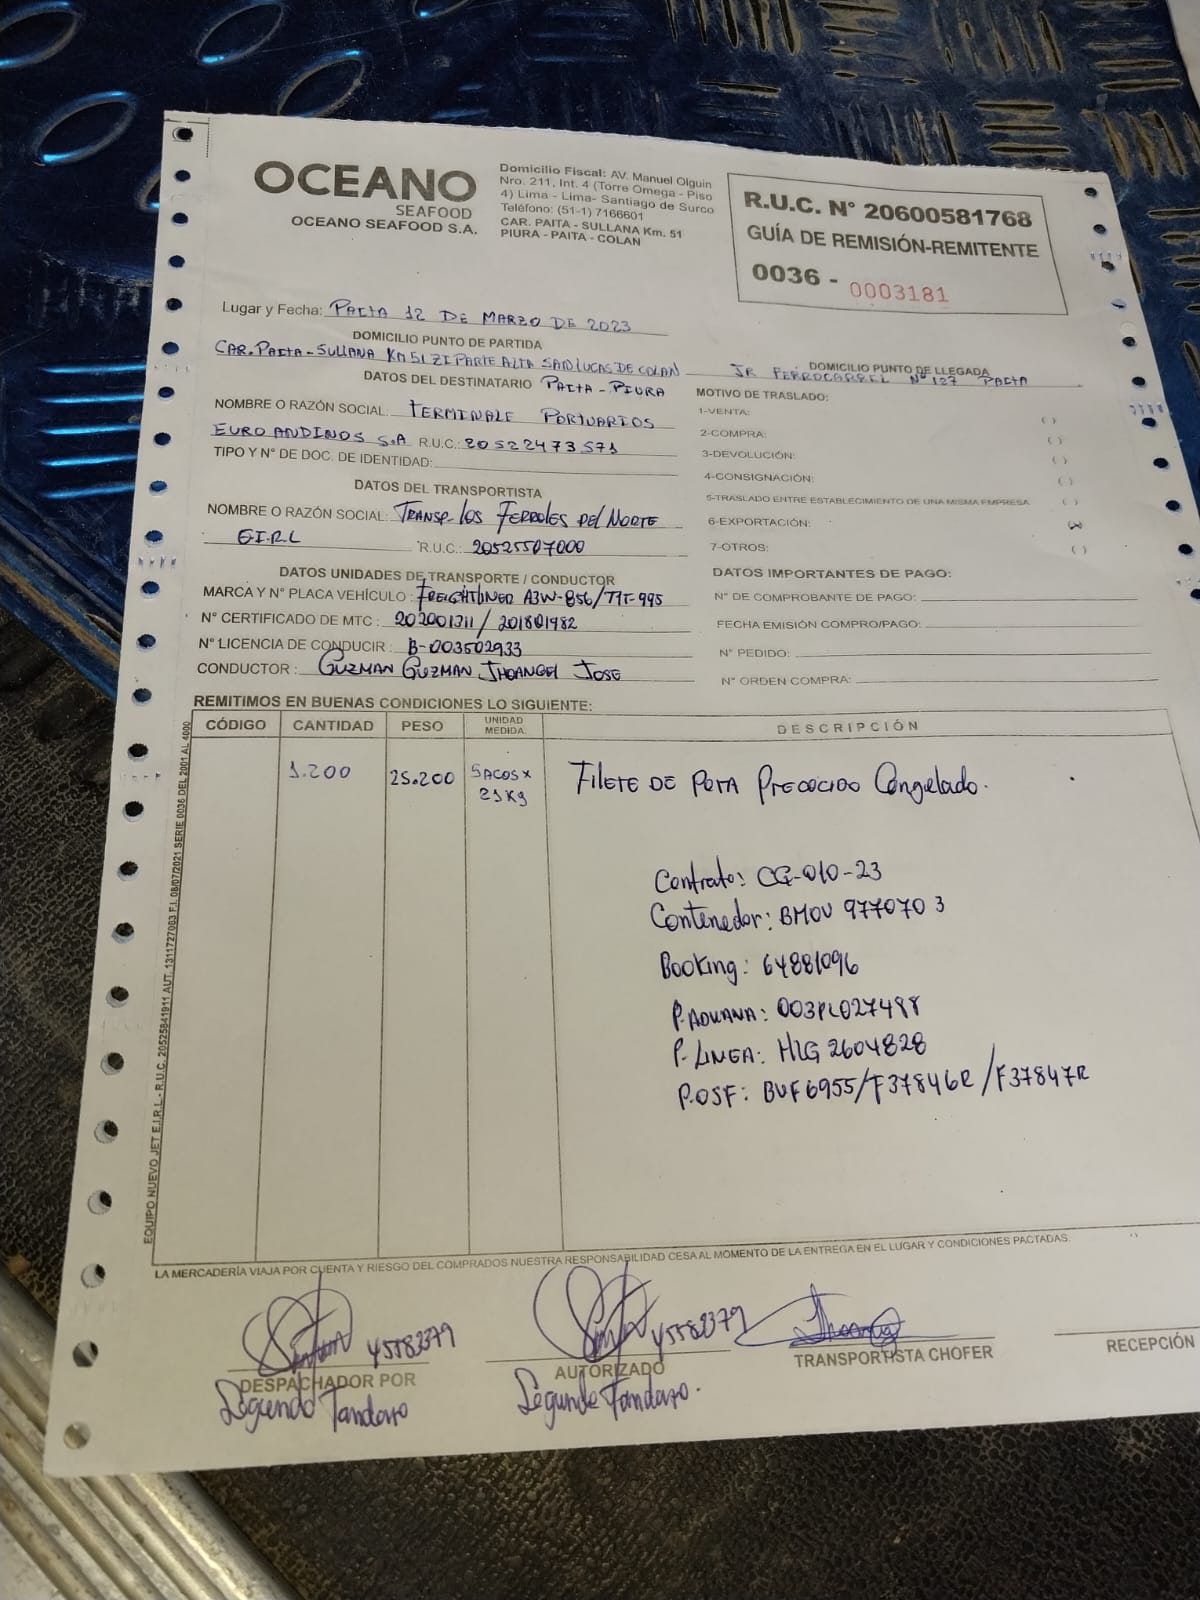 OCEANO
SEAFOOD
OCEANO SEAFOOD S.A.
Domicilio Fiscal: AV. Manuel Olguin
Nro. 211, Int. 4 (Torre Omega - Piso
4) Lima - Lima- Santiago de Surco
Teléfono: (51-1) 7166601
CAR. PAITA - SULLANA Km. 51
PIURA - PAITA - COLAN
R.U.C. N° 20600581768
GUÍA DE REMISIÓN-REMITENTE
0036 - 0003181
Lugar y Fecha: PAITA 12 DE MARZO DE 2023
DOMICILIO PUNTO DE PARTIDA
CAR. PAITA - SULLANA KM 51 ZI PARTE ALTA SAN LUCAS DE COLAN
DOMICILIO PUNTO DE LLEGADA
JR FERROCARREL N° 127 PAITA
DATOS DEL DESTINATARIO PAITA - PIURA
NOMBRE O RAZÓN SOCIAL: TERMINALE PORTUARIOS
EURO ANDINOS S.A R.U.C.: 20522473571
TIPO Y N° DE DOC. DE IDENTIDAD:
MOTIVO DE TRASLADO:
1-VENTA: ( )
2-COMPRA: ( )
3-DEVOLUCIÓN: ( )
4-CONSIGNACIÓN: ( )
5-TRASLADO ENTRE ESTABLECIMIENTO DE UNA MISMA EMPRESA ( )
6-EXPORTACIÓN: (x)
7-OTROS: ( )
DATOS DEL TRANSPORTISTA
NOMBRE O RAZÓN SOCIAL: TRANSP. los FERROLES DEL NORTE
E.I.R.L R.U.C.: 20525507000
DATOS UNIDADES DE TRANSPORTE / CONDUCTOR
MARCA Y N° PLACA VEHÍCULO: FREIGHTLINER A3W-856/T7T-995
N° CERTIFICADO DE MTC: 202001311 / 201801982
N° LICENCIA DE CONDUCIR: B-003502933
CONDUCTOR: GUZMAN GUZMAN JHOANGEL JOSE
DATOS IMPORTANTES DE PAGO:
N° DE COMPROBANTE DE PAGO:
FECHA EMISIÓN COMPRO/PAGO:
N° PEDIDO:
N° ORDEN COMPRA:
REMITIMOS EN BUENAS CONDICIONES LO SIGUIENTE:
CÓDIGO CANTIDAD PESO UNIDAD MEDIDA. DESCRIPCIÓN
1.200 25.200 SACOS x 21 Kg FILETE DE POTA PRECOCIDO Congelado.
Contrato: CG-010-23
Contenedor: BMOU 977070 3
Booking: 64881096
P. ADUANA: 003PL027488
P. LINEA: HLG 2604828
P. OSF: BUF6955/F37846R/F37847R
EQUIPO NUEVO JET E.I.R.L - R.U.C. 20525841911 AUT. 1311727083 F.I. 08/07/2021 SERIE 0036 DEL 2001 AL 4000
LA MERCADERÍA VIAJA POR CUENTA Y RIESGO DEL COMPRADOS NUESTRA RESPONSABILIDAD CESA AL MOMENTO DE LA ENTREGA EN EL LUGAR Y CONDICIONES PACTADAS.
45582379
45582379
DESPACHADOR POR
AUTORIZADO
TRANSPORTISTA CHOFER
RECEPCIÓN
Segundo Tandazo
Segundo Tandazo.